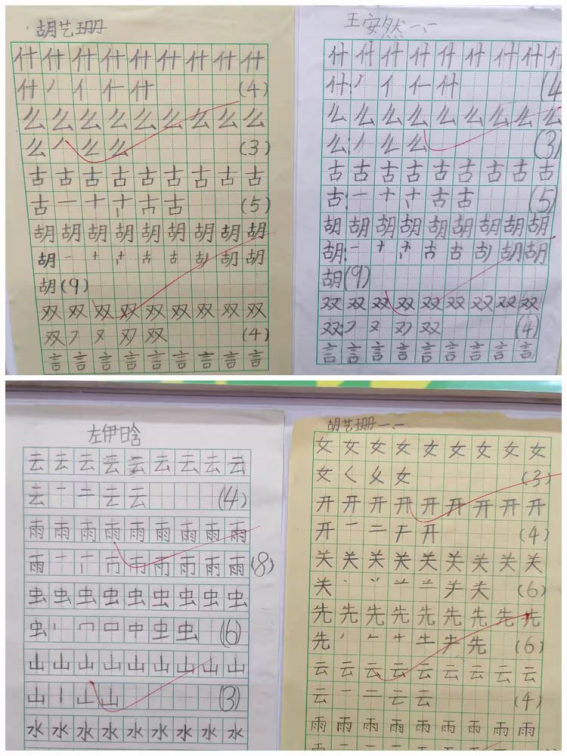 胡艺珊
什什什什什什什什什
什丿亻仁什(4)
么么么么么么么么么
么丿么么(3)
古古古古古古古古古
古一十十古古(5)
胡胡胡胡胡胡胡胡胡
胡一十十古古胡胡胡
胡(9)
双双双双双双双双双
双フ又双双(4)
言言言言言言言言言
王安然一.一
什什什什什什什什什
什丿亻仁什(4
么么么么么么么么么
么丿么么(3)
古古古古古古古古古
古一十十古古(5)
胡胡胡胡胡胡胡胡胡
胡一十十古古胡胡胡
胡(9)
双双双双双双双双双
双フ又双双(4)
言言言言言言言言言
左伊晗
云云云云云云云云云
云一二云云(4)
雨雨雨雨雨雨雨雨雨
雨一冂币雨雨雨雨雨(8)
虫虫虫虫虫虫虫虫虫
虫丨冂口中虫虫(6)
山山山山山山山山山
山丨山山(3)
水水水水水水水水水
胡艺珊一.一
女女女女女女女女女
女く女女(3)
开开开开开开开开开
开一二开开(4)
关关关关关关关关关
关丶丷䒑兰关关(6)
先先先先先先先先先
先丿𠂉牛生先先(6)
云云云云云云云云云
云一二云云(4)
雨雨雨雨雨雨雨雨雨